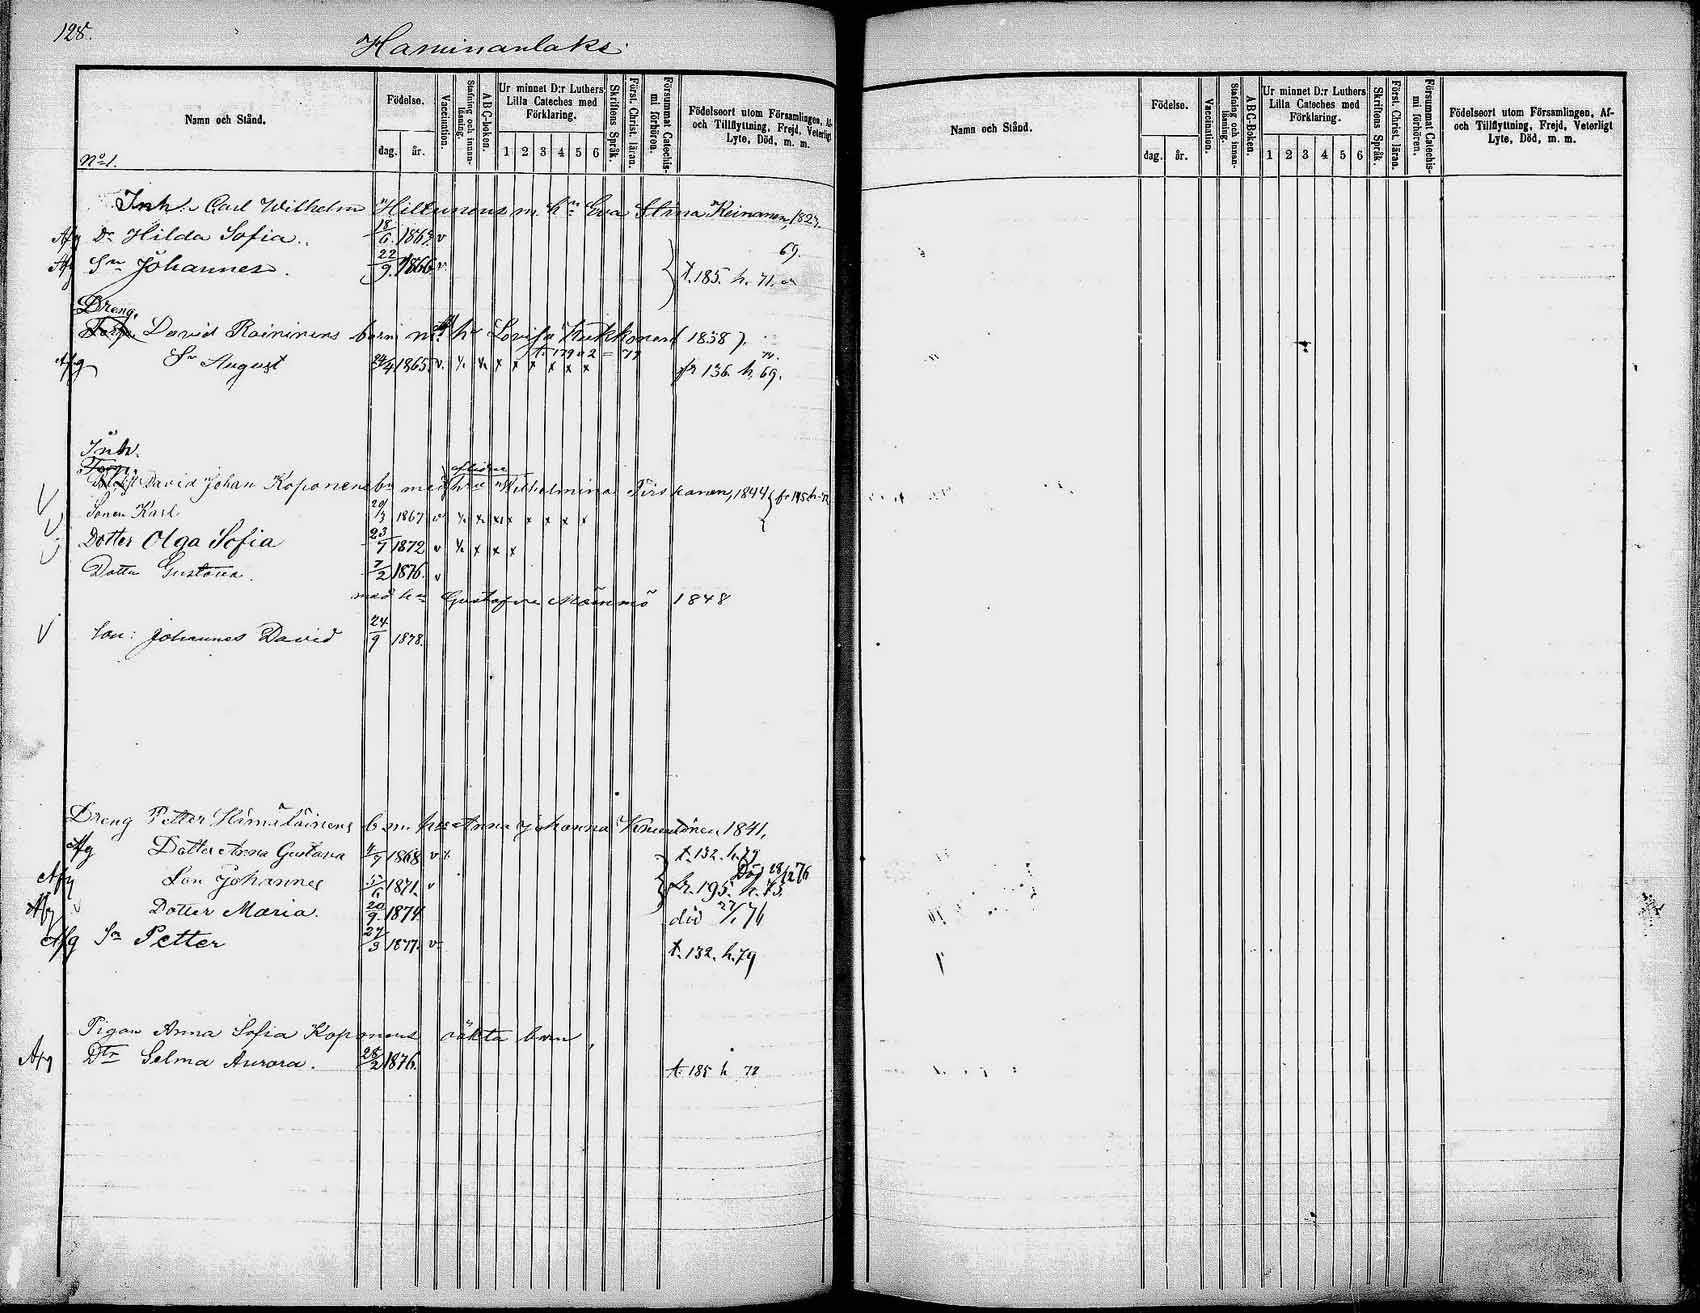 128.
Haminanlaks
Namn och Stånd.
Födelse.
dag. år.
Vaccination.
Stafning och innan-läsning.
A B C-boken.
Ur minnet D:r Luthers Lilla Cateches med Förklaring.
1 2 3 4 5 6
Skriftens Språk.
Först. Christ. läran.
Försummat Catechis-mi förhören.
Födelseort utom Församlingen, Af-
och Tillflyttning, Frejd, Veterligt
Lyte, Död, m. m.
No 1.
Inh. Carl Wilhelm Hiltunens m. hu Eva Stina Keinanen, 1827.
Afg Dr Hilda Sofia. 18/6. v 69.
Afg Sn Johannes. 22/9. 1866. v. t. 185. h. 71.
Dreng.
David Raininens barn m. hu Lovisa Kukkonen (1838).
t. 179
Afg Sn August 24/4 1865. v. x x x x x x fr 136. h. 69.
Inh.
aflidne
David Johan Koponens bn med hu Wilhelmina Pirskanen, 1844
Sonen Karl 1867 v x x x x x x x
Dotter Olga Sofia 23/7 1872 v x x x
Dotter Gustava. 7/2 1876. v
med hu Gustafva 1848
Son: Johannes David 24/9 1878.
Dreng Petter Hämäläinens b m. hu Anna Johanna 1841.
Afg Dotter Anna Gustava 1868 v t. 132. h. 79
Död 28/12 76
Afg Son Johannes 5/6. 1871. v fr. 195. h. 73.
Afg Dotter Maria. 20/9. 1874. död 76
Afg Sn Petter 27/3 1877. v t. 132. h. 79
Pigan Anna Sofia Koponens oäkta barn,
Afg Dtr Selma Aurora. 28/2 1876. t. 185 h 78
Namn och Stånd.
Födelse.
dag. år.
Vaccination.
Stafning och innan-läsning.
A B C-Boken.
Ur minnet D:r Luthers Lilla Cateches med Förklaring.
1 2 3 4 5 6
Skriftens Språk.
Först. Christ. läran.
Försummat Catechis-mi förhören.
Födelseort utom Församlingen, Af-
och Tillflyttning, Frejd, Veterligt
Lyte, Död, m. m.